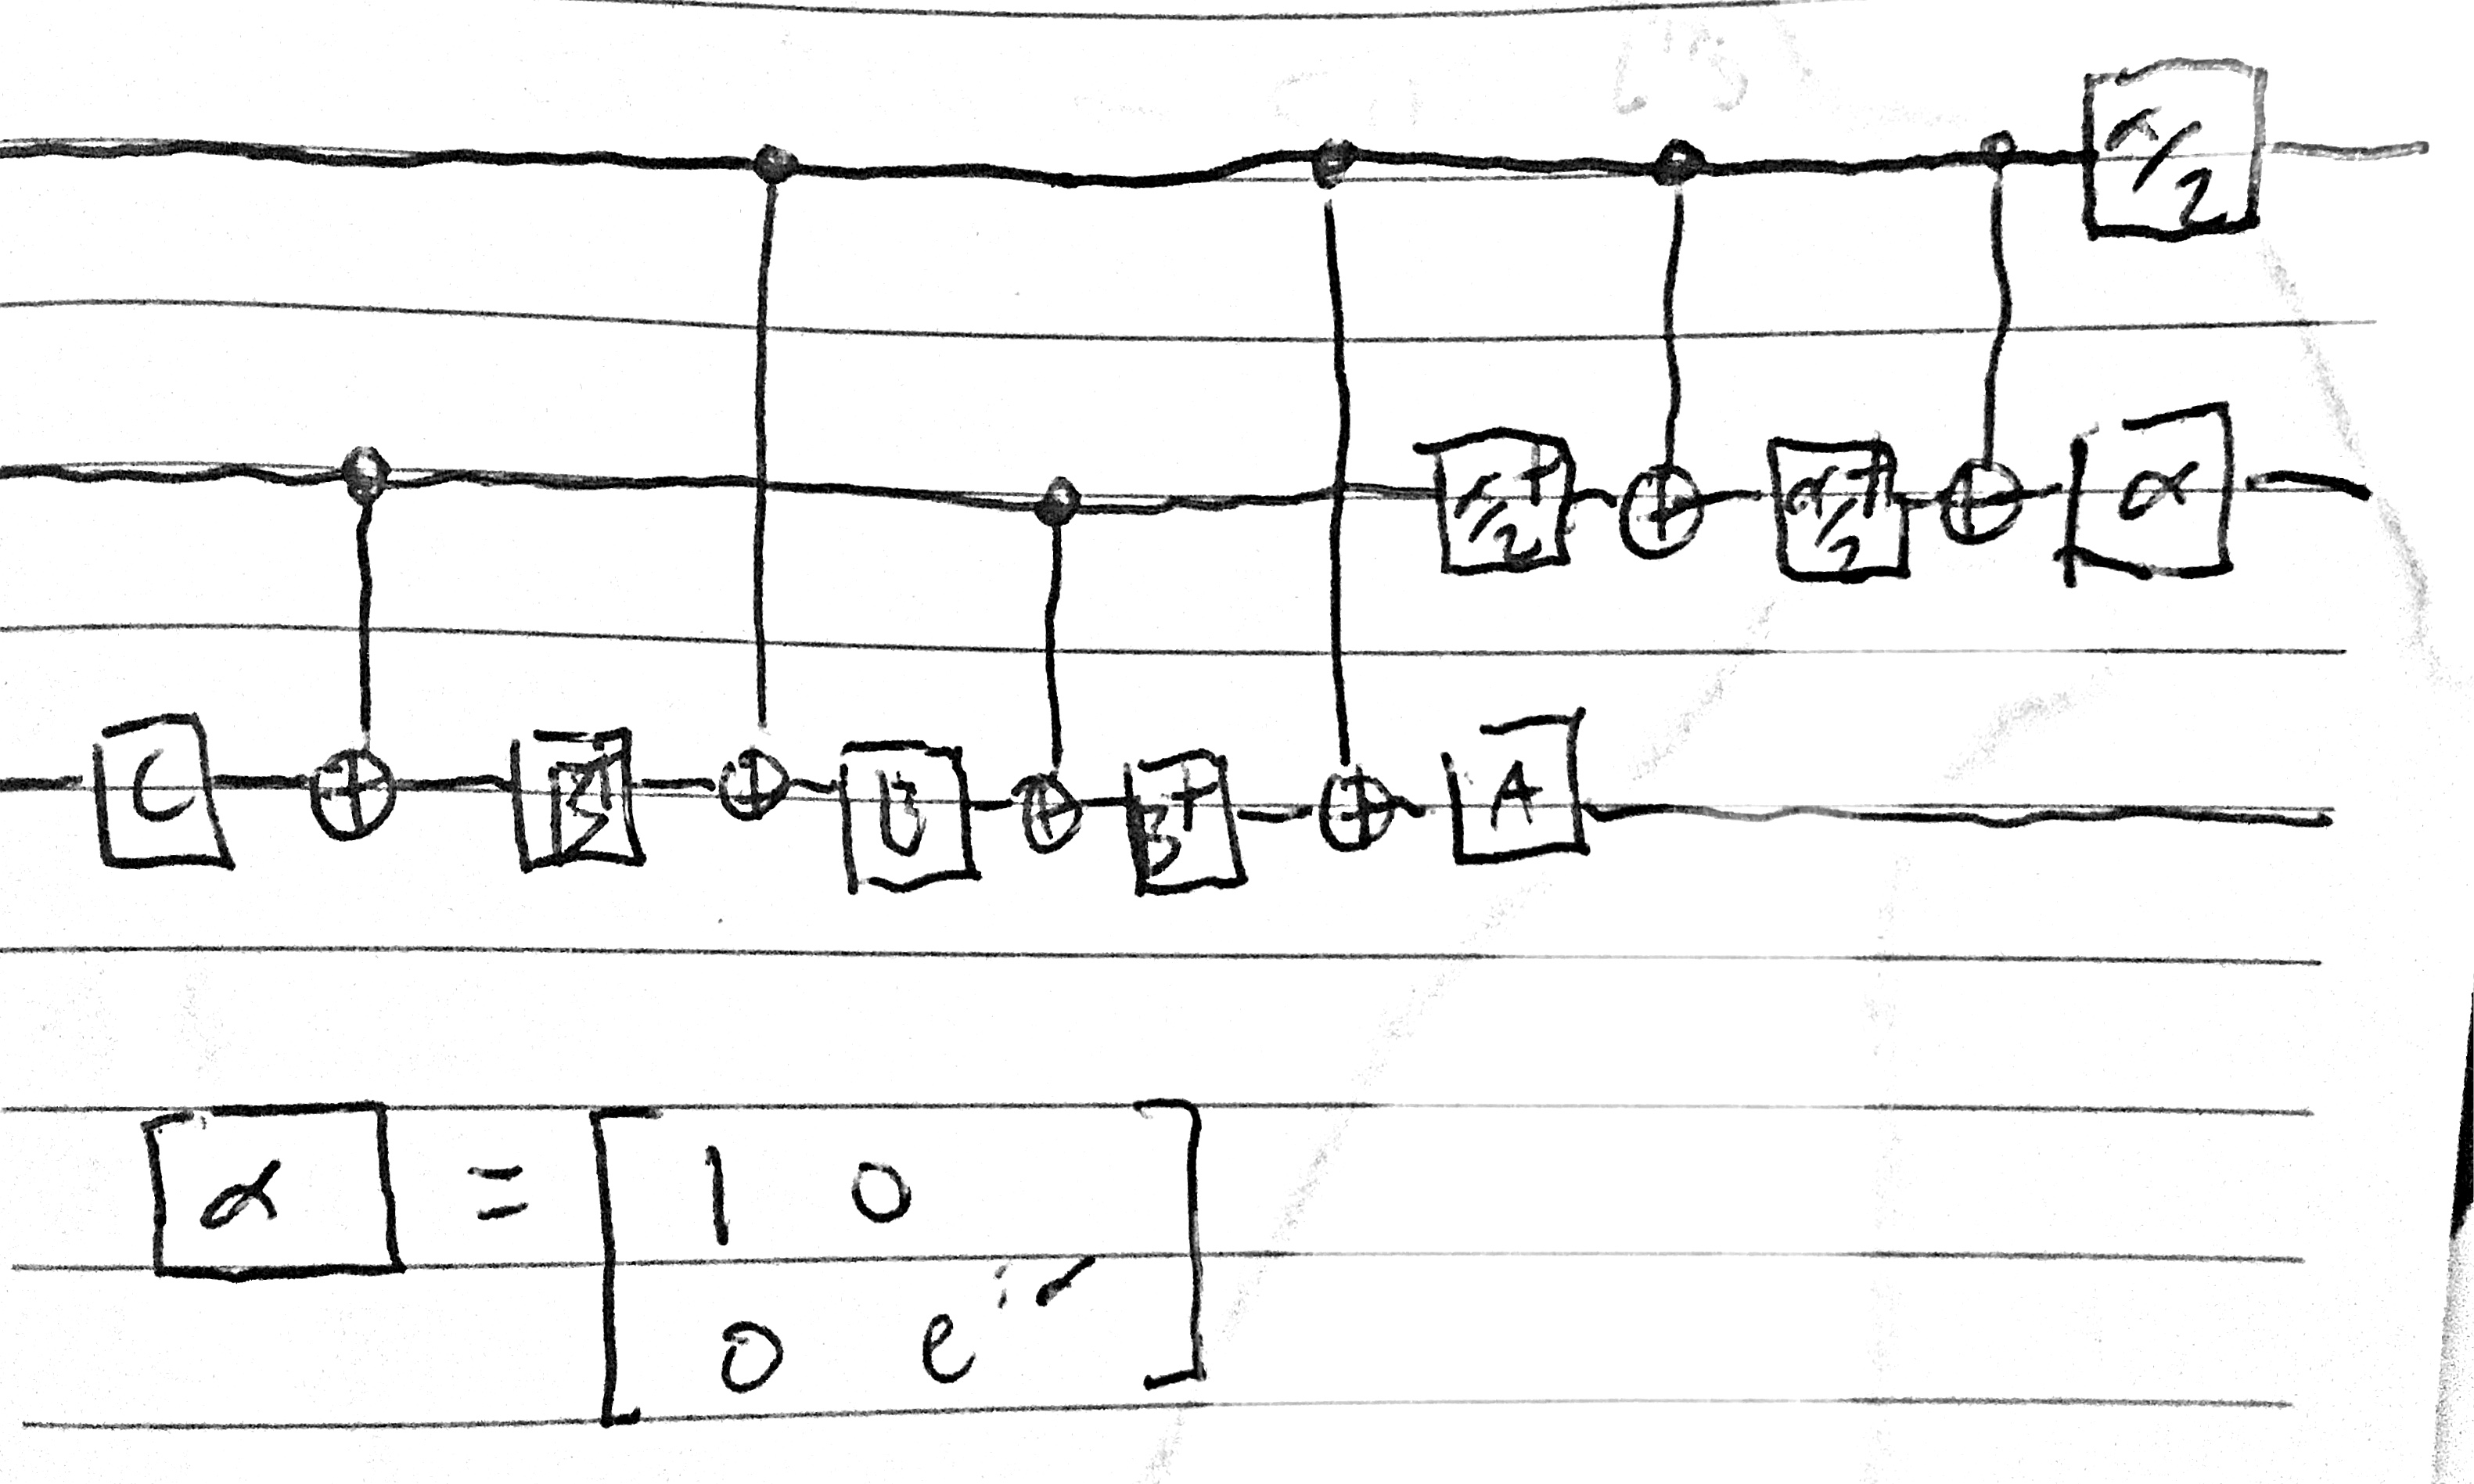 α/2
α/2† α/2† α
C B† B B† A
α = [ 1 0
0 e^iα ]